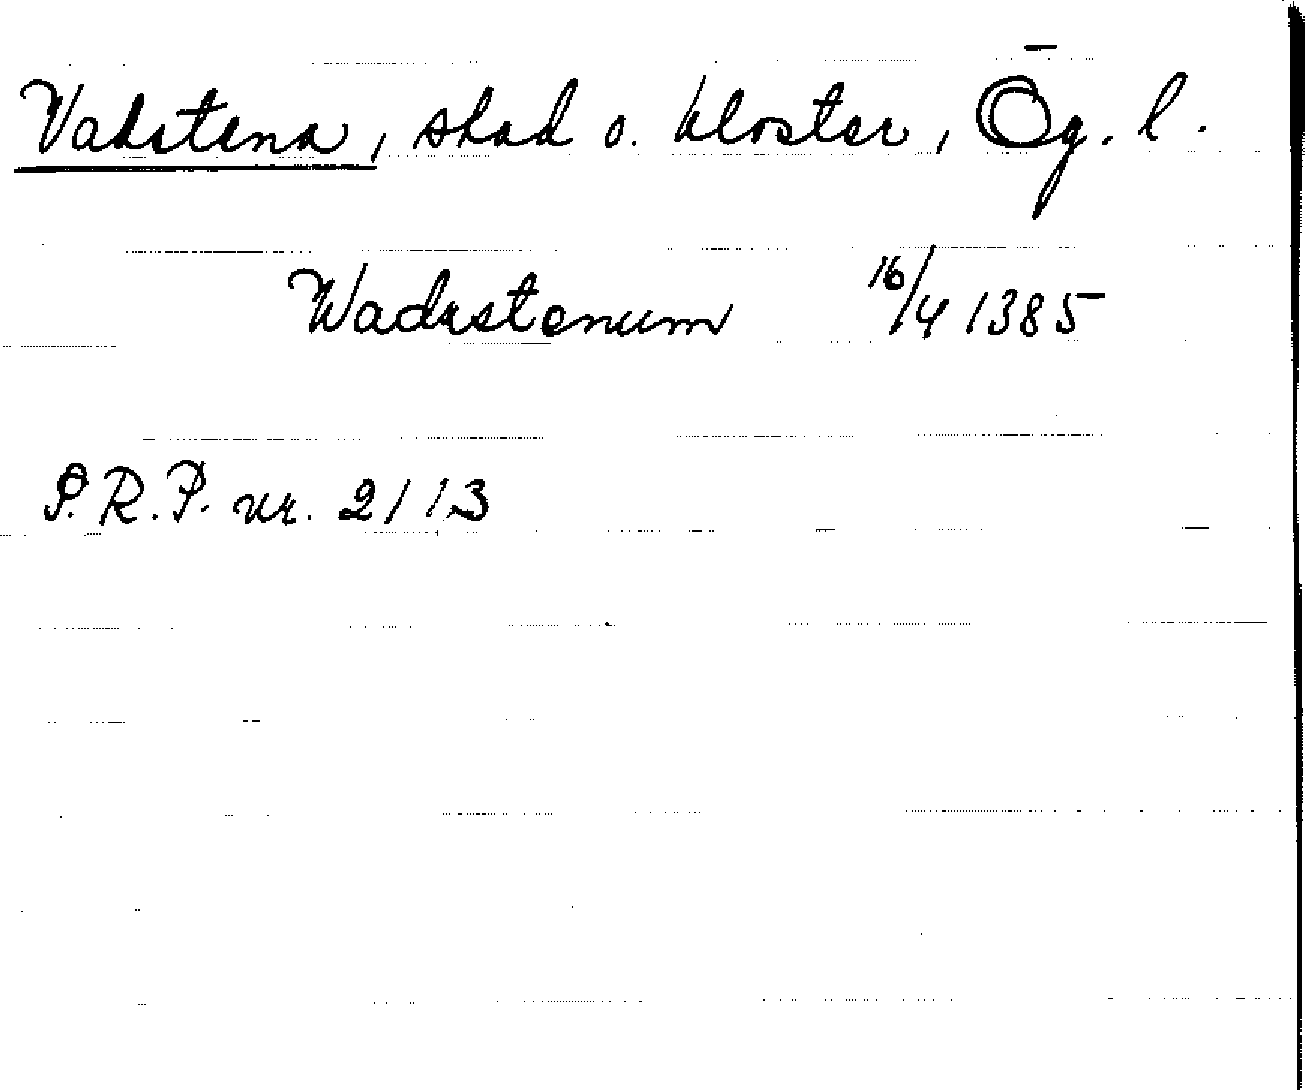 Vadstena, stad o. kloster, Ög. l.
Wadzstenum 16/4 1385
S.R.P. nr. 2113